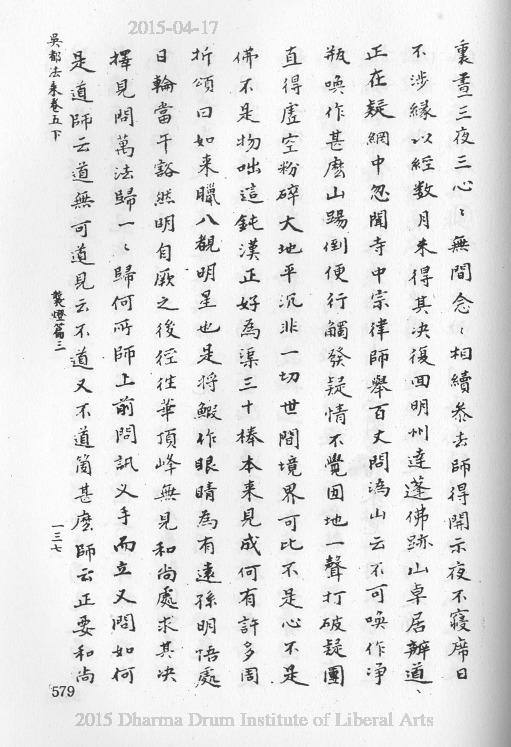 2015-04-17
裏晝三夜三心〻無間念〻相續參去師得開示夜不寢席日
不涉緣以經数月未得其决復回明州達蓬佛跡山卓居辦道、
正在疑網中忽聞寺中宗律師舉百丈問溈山云不可喚作淨
瓶喚作甚麽山踢倒便行觸發疑情不覺囬地一聲打破疑團
直得虚空粉碎大地平沉非一切世間境界可比不是心不是
佛不是物咄這鈍漢正好為渠三十棒本来見成何有許多周
折頌曰如来臘八覩明星也是将鰕作眼睛為有遠孫明悟處
日輪當午豁然明自厥之後徑往華頂峰無見和尚處求其决
擇見問萬法歸一〻歸何所師上前問訊义手而立又問如何
是道師云道無可道見云不道又不道箇甚麽師云正要和尚
吳都法乘卷五下
襲燈篇三
一三七
579
2015 Dharma Drum Institute of Liberal Arts